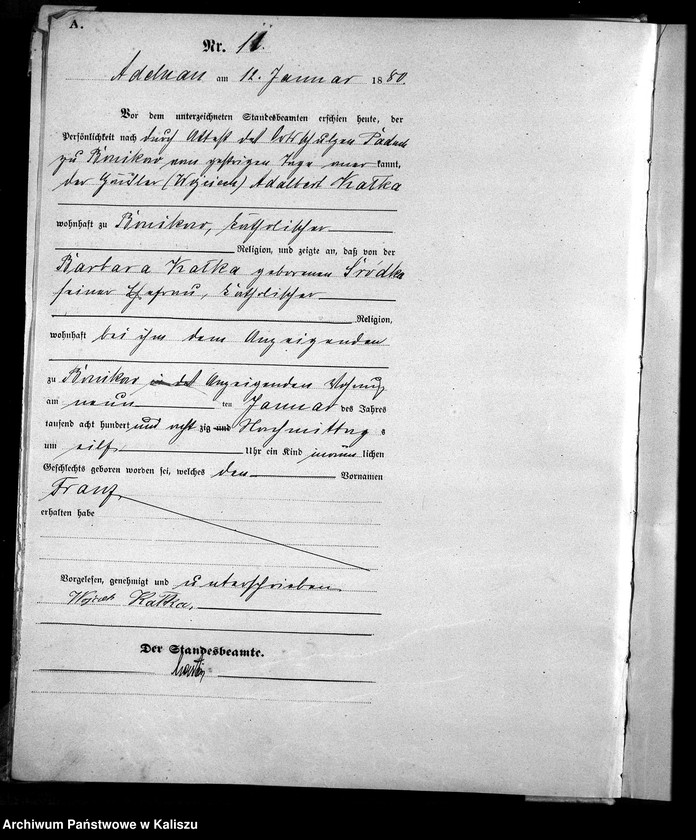 A.
Nr. 11.
Adelnau am 12. Januar 1880.
Vor dem unterzeichneten Standesbeamten erschien heute, der
Persönlichkeit nach durch Attest des Ortsschulzen
zu Bonikow vom gestrigen Tage aner kannt,
der Häusler (Wojciech) Adalbert Kałka
wohnhaft zu Bonikow, katholischer
Religion, und zeigte an, daß von der
Barbara Kałka geborenen Śródka
seiner Ehefrau, katholischer
Religion,
wohnhaft bei ihm dem Anzeigenden
zu Bonikow in des Anzeigenden Wohnung
am neun ten Januar des Jahres
tausend acht hundert und acht zig und Nachmittag s
um eilf Uhr ein Kind männ lichen
Geschlechts geboren worden sei, welches den Vornamen
Franz
erhalten habe
Vorgelesen, genehmigt und unterschrieben
Kałka.
Der Standesbeamte.
Archiwum Państwowe w Kaliszu